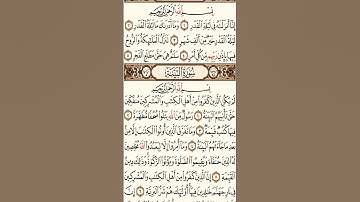 بِسْمِ اللَّهِ الرَّحْمَٰنِ الرَّحِيمِ
إِنَّا أَنْزَلْنَاهُ فِي لَيْلَةِ الْقَدْرِ ۝١ وَمَا أَدْرَاكَ مَا لَيْلَةُ الْقَدْرِ ۝٢
لَيْلَةُ الْقَدْرِ خَيْرٌ مِنْ أَلْفِ شَهْرٍ ۝٣ تَنَزَّلُ الْمَلَائِكَةُ وَالرُّوحُ
فِيهَا بِإِذْنِ رَبِّهِمْ مِنْ كُلِّ أَمْرٍ ۝٤ سَلَامٌ هِيَ حَتَّى مَطْلَعِ الْفَجْرِ ۝٥
سُورَةُ الْبَيِّنَةِ
بِسْمِ اللَّهِ الرَّحْمَٰنِ الرَّحِيمِ
لَمْ يَكُنِ الَّذِينَ كَفَرُوا مِنْ أَهْلِ الْكِتَابِ وَالْمُشْرِكِينَ مُنْفَكِّينَ
حَتَّى تَأْتِيَهُمُ الْبَيِّنَةُ ۝١ رَسُولٌ مِنَ اللَّهِ يَتْلُو صُحُفًا مُطَهَّرَةً ۝٢
فِيهَا كُتُبٌ قَيِّمَةٌ ۝٣ وَمَا تَفَرَّقَ الَّذِينَ أُوتُوا الْكِتَابَ إِلَّا مِنْ
بَعْدِ مَا جَاءَتْهُمُ الْبَيِّنَةُ ۝٤ وَمَا أُمِرُوا إِلَّا لِيَعْبُدُوا اللَّهَ مُخْلِصِينَ
لَهُ الدِّينَ حُنَفَاءَ وَيُقِيمُوا الصَّلَاةَ وَيُؤْتُوا الزَّكَاةَ وَذَلِكَ دِينُ
الْقَيِّمَةِ ۝٥ إِنَّ الَّذِينَ كَفَرُوا مِنْ أَهْلِ الْكِتَابِ وَالْمُشْرِكِينَ
فِي نَارِ جَهَنَّمَ خَالِدِينَ فِيهَا أُولَئِكَ هُمْ شَرُّ الْبَرِيَّةِ ۝٦ إِنَّ